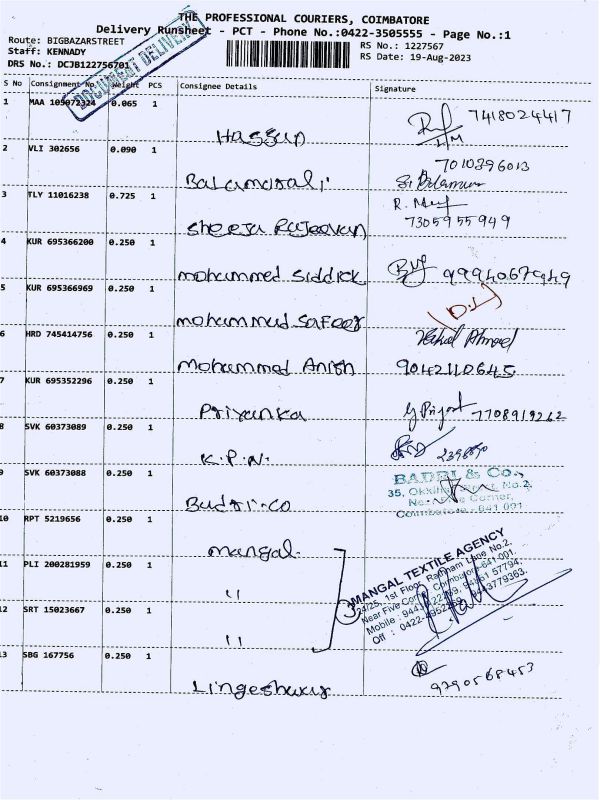 THE PROFESSIONAL COURIERS, COIMBATORE
Delivery Runsheet - PCT - Phone No.:0422-3505555 - Page No.:1
Route: BIGBAZARSTREET
Staff: KENNADY
DRS No.: DCJB122756701
RS No.: 1227567
RS Date: 19-Aug-2023
DOCUMENT DELIVERY
S No Consignment No. Weight PCS Consignee Details Signature
1 MAA 109072324 0.065 1 Hassan 7418024417
2 VLI 302656 0.090 1 Balamurali 7010396013
3 TLY 11016238 0.725 1 Sheeja Rajeevan 7305955949
4 KUR 695366200 0.250 1 Mohammed Siddick 9994067949
5 KUR 695366969 0.250 1 Mohammed Safeer (D.L)
6 HRD 745414756 0.250 1 Mohammed Anish 9042110645
7 KUR 695352296 0.250 1 Priyanka 7708919262
8 SVK 60373089 0.250 1 K.P.N. 2398890
9 SVK 60373088 0.250 1 Budri.co
BADRI & Co.,
35, No.2,
Corner,
Coimbatore - 641 001
10 RPT 5219656 0.250 1 Mangal
11 PLI 200281959 0.250 1 "
12 SRT 15023667 0.250 1 "
3
MANGAL TEXTILE AGENCY
24/25, 1st Floor, Ratnam Lane No.2,
Near Five Corner, Coimbatore-641 001.
Mobile : 57794,
Off : 0422-
13 SBG 167756 0.250 1 Lingeshwar 9290568453